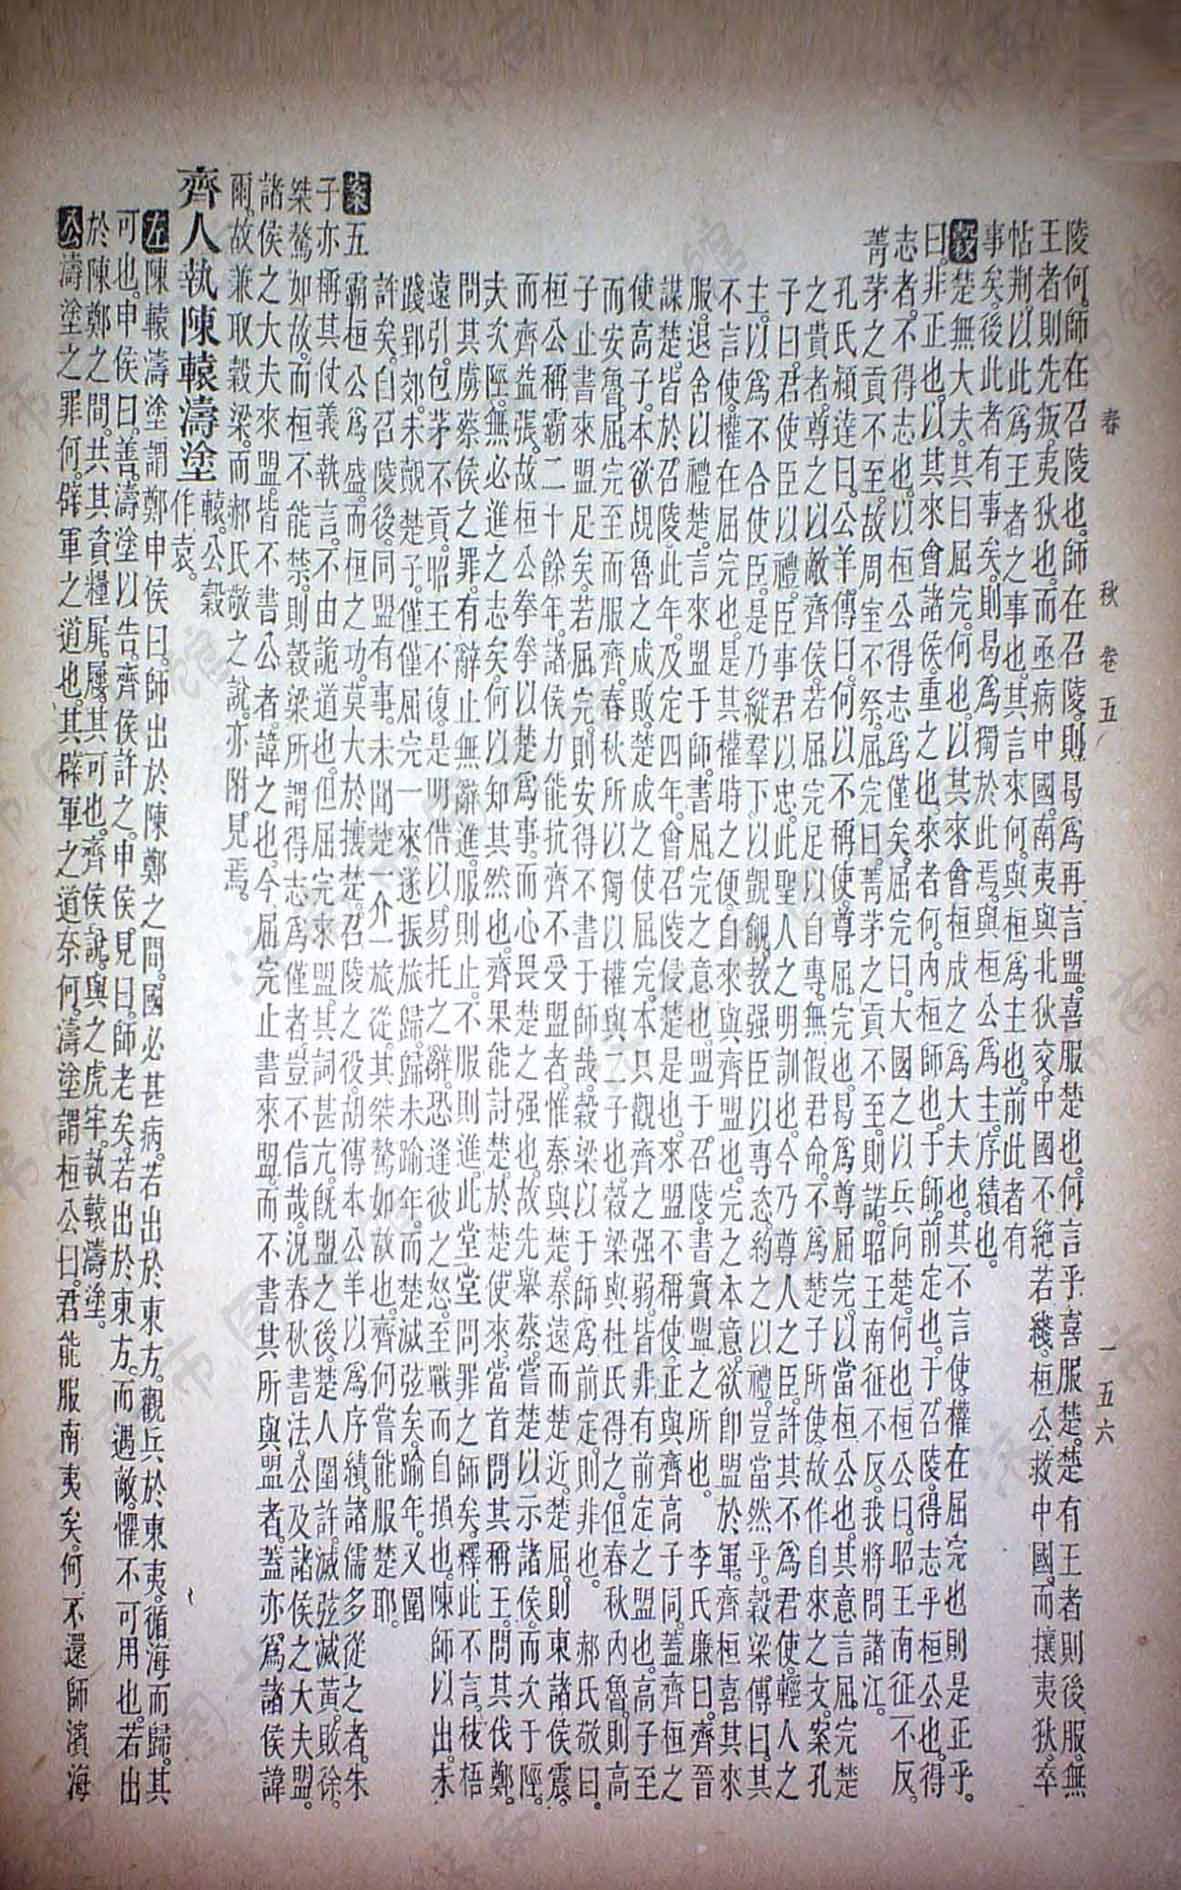 春　秋　卷五　一五六
陵何。師在召陵也。師在召陵。則曷爲再言盟。喜服楚也。何言乎喜服楚。楚有王者則後服。無
王者則先叛。夷狄也。而亟病中國。南夷與北狄交。中國不絕若綫。桓公救中國。而攘夷狄。卒
怗荆。以此爲王者之事也。其言來何。與桓爲主也。前此者有
事矣。後此者有事矣。則曷爲獨於此焉。與桓公爲主。序績也。
穀楚無大夫。其曰屈完。何也。以其來會桓成之爲大夫也。其不言使。權在屈完也。則是正乎。
曰。非正也。以其來會諸侯。重之也。來者何。內桓師也。于師。前定也。于召陵。得志乎桓公也。得
志者。不得志也。以桓公得志爲僅矣。屈完曰。大國之以兵向楚。何也。桓公曰。昭王南征不反。
菁茅之貢不至。故周室不祭。屈完曰。菁茅之貢不至。則諾。昭王南征不反。我將問諸江。
孔氏穎達曰。公羊傳曰。何以不稱使。尊屈完也。曷爲尊屈完。以當桓公也。其意言屈完楚
之貴者。尊之以敵齊侯。若屈完足以自專。無假君命。不爲楚子所使。故作自來之文。案孔
子曰。君使臣以禮。臣事君以忠。此聖人之明訓也。今乃尊人之臣。許其不爲君使。輕人之
主。以爲不合使臣。是乃縱羣下以覬覦。教强臣以專恣。約之以禮。豈當然乎。穀梁傳曰。其
不言使。權在屈完也。是其權時之便。自來與齊盟也。完之本意。欲卽盟於軍。齊桓喜其來
服。退舍以禮楚。言來盟于師。書屈完之意也。盟于召陵。書實盟之所也。　李氏廉曰。齊晉
謀楚。皆於召陵。此年。及定四年。會召陵侵楚是也。來盟不稱使。正與齊高子同。蓋齊桓之
使高子。本欲覘魯之成敗。楚成之使屈完。本只觀齊之强弱。皆非有前定之盟也。高子至
而安魯。屈完至而服齊。春秋所以獨以權與二子也。穀梁與杜氏得之。但春秋內魯。則高
子止書來盟足矣。若屈完。則安得不書于師哉。穀梁以于師爲前定則非也。　郝氏敬曰。
桓公稱霸二十餘年。諸侯力能抗齊不受盟者。惟秦與楚。秦遠而楚近。楚屈。則東諸侯震
而齊益張。故桓公拳拳以楚爲事。而心畏楚之强也。故先舉蔡。嘗楚以示諸侯。而次于陘。
夫次陘。無必進之志矣。何以知其然也。齊果能討楚。於楚使來。當首問其稱王。問其伐鄭。
問其虜蔡侯之罪。有辭止。無辭進。服則止。不服則進。此堂堂問罪之師矣。釋此不言。枝梧
遠引。包茅不貢。昭王不復。是明借以易托之辭。恐逢彼之怒。至戰而自損也。陳師以出。未
踐郢郊。未覿楚子。僅僅屈完一來。遂振旅歸。歸未踰年。而楚滅弦矣。踰年。又圍
許矣。自召陵後。同盟有事。未聞楚一介一旅從。其桀驁如故也。齊何嘗能服楚耶。
案五霸桓公爲盛。而桓之功。莫大於攘楚。召陵之役。胡傳本公羊以爲序績。諸儒多從之者。朱
子亦稱其仗義執言。不由詭道也。但屈完來盟。其詞甚亢。旣盟之後。楚人圍許。滅弦滅黃。敗徐。
桀驁如故。而桓不能禁。則穀梁所謂得志爲僅者。豈不信哉。況春秋書法。公及諸侯之大夫盟。
諸侯之大夫來盟。皆不書公者。諱之也。今屈完止書來盟。而不書其所與盟者。蓋亦爲諸侯諱
爾。故兼取穀梁。而郝氏敬之說。亦附見焉。
齊人執陳轅濤塗轅。公穀作袁。
左陳轅濤塗謂鄭申侯曰。師出於陳鄭之間。國必甚病。若出於東方。觀兵於東夷。循海而歸。其
可也。申侯曰。善。濤塗以告。齊侯許之。申侯見曰。師老矣。若出於東方。而遇敵。懼不可用也。若出
於陳鄭之間。共其資糧屝屨。其可也。齊侯說。與之虎牢。執轅濤塗。
公濤塗之罪何。辟軍之道也。其辟軍之道奈何。濤塗謂桓公曰。君能服南夷矣。何不還師濱海